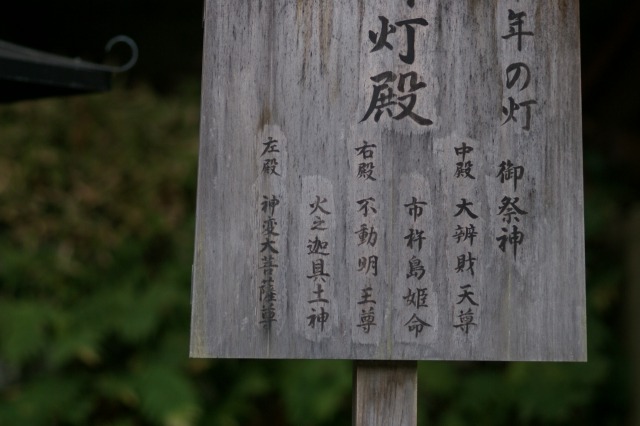 年の灯 御祭神
灯殿
中殿 大辨財天尊
市杵島姫命
右殿 不動明王尊
火之迦具土神
左殿 神変大菩薩尊